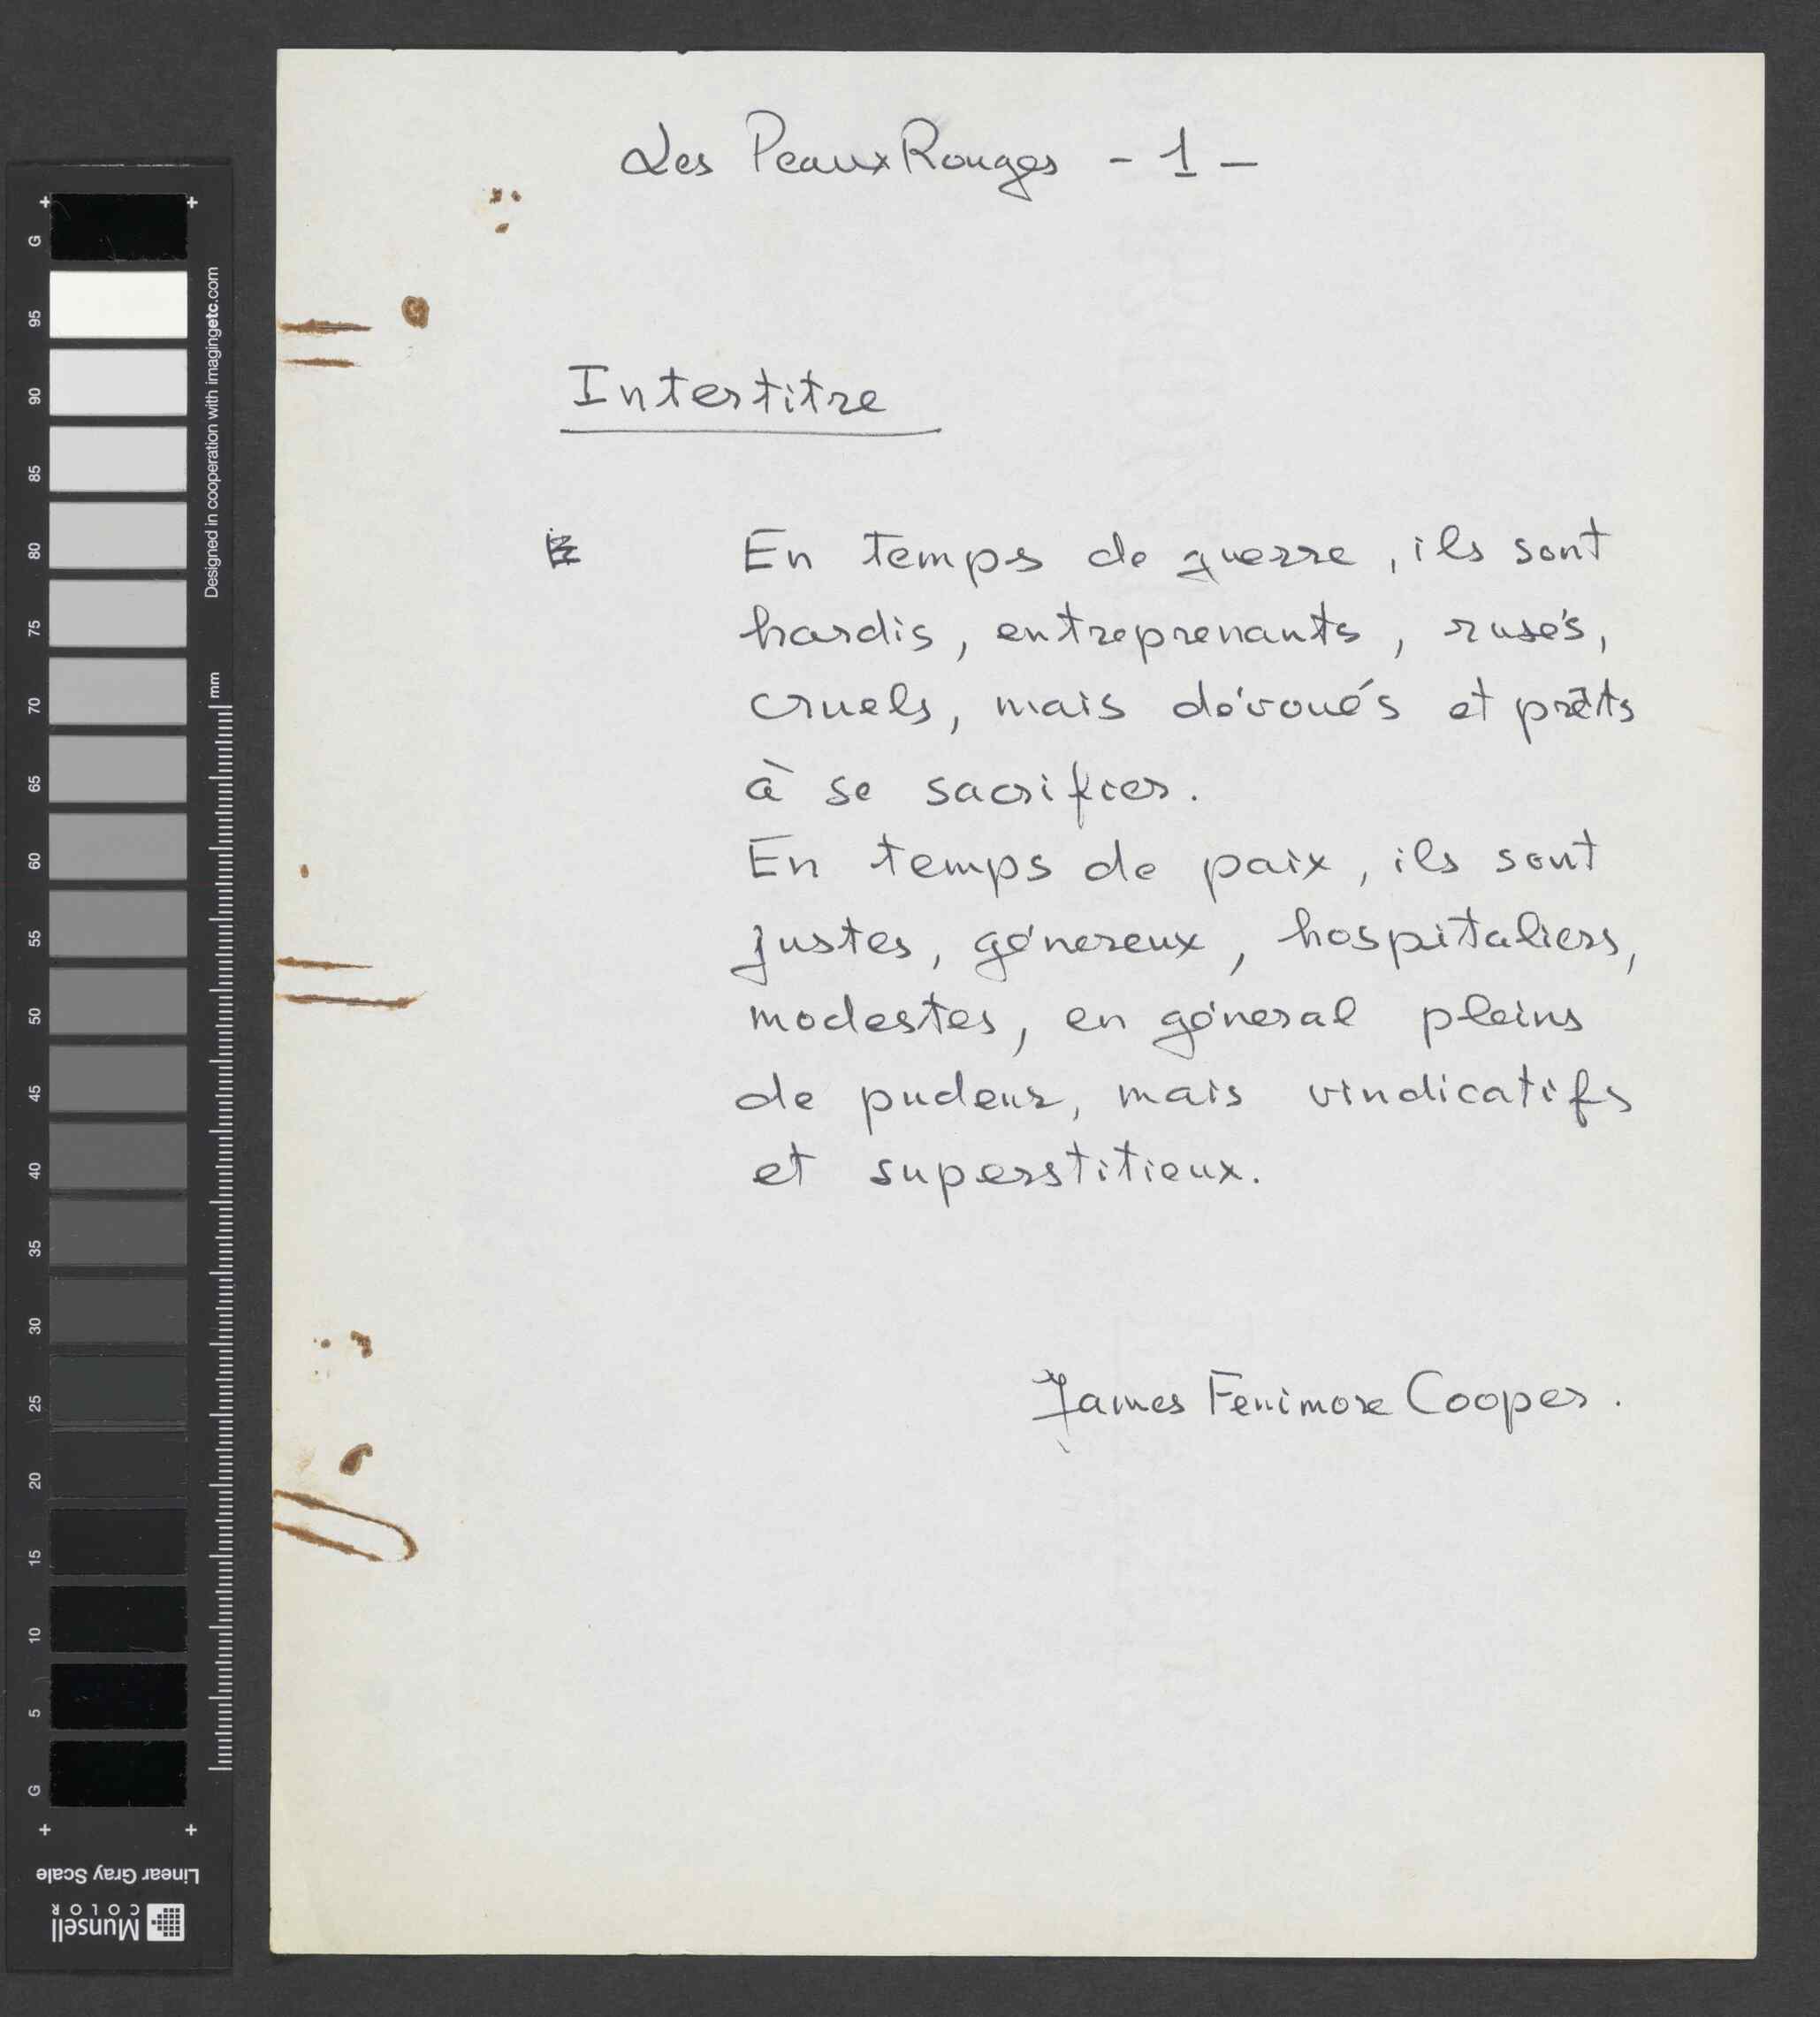 Les Peaux Rouges - 1 -
Intertitre
En temps de guerre, ils sont
hardis, entreprenants, rusés,
cruels, mais dévoués et prêts
à se sacrifier.
En temps de paix, ils sont
justes, génereux, hospitaliers,
modestes, en géneral pleins
de pudeur, mais vindicatifs
et superstitieux.
James Fenimore Cooper.
G
95
90
85
80
75
70
65
60
55
50
45
40
35
30
25
20
15
10
5
G
Designed in cooperation with imagingetc.com
mm
Linear Gray Scale
Munsell
COLOR